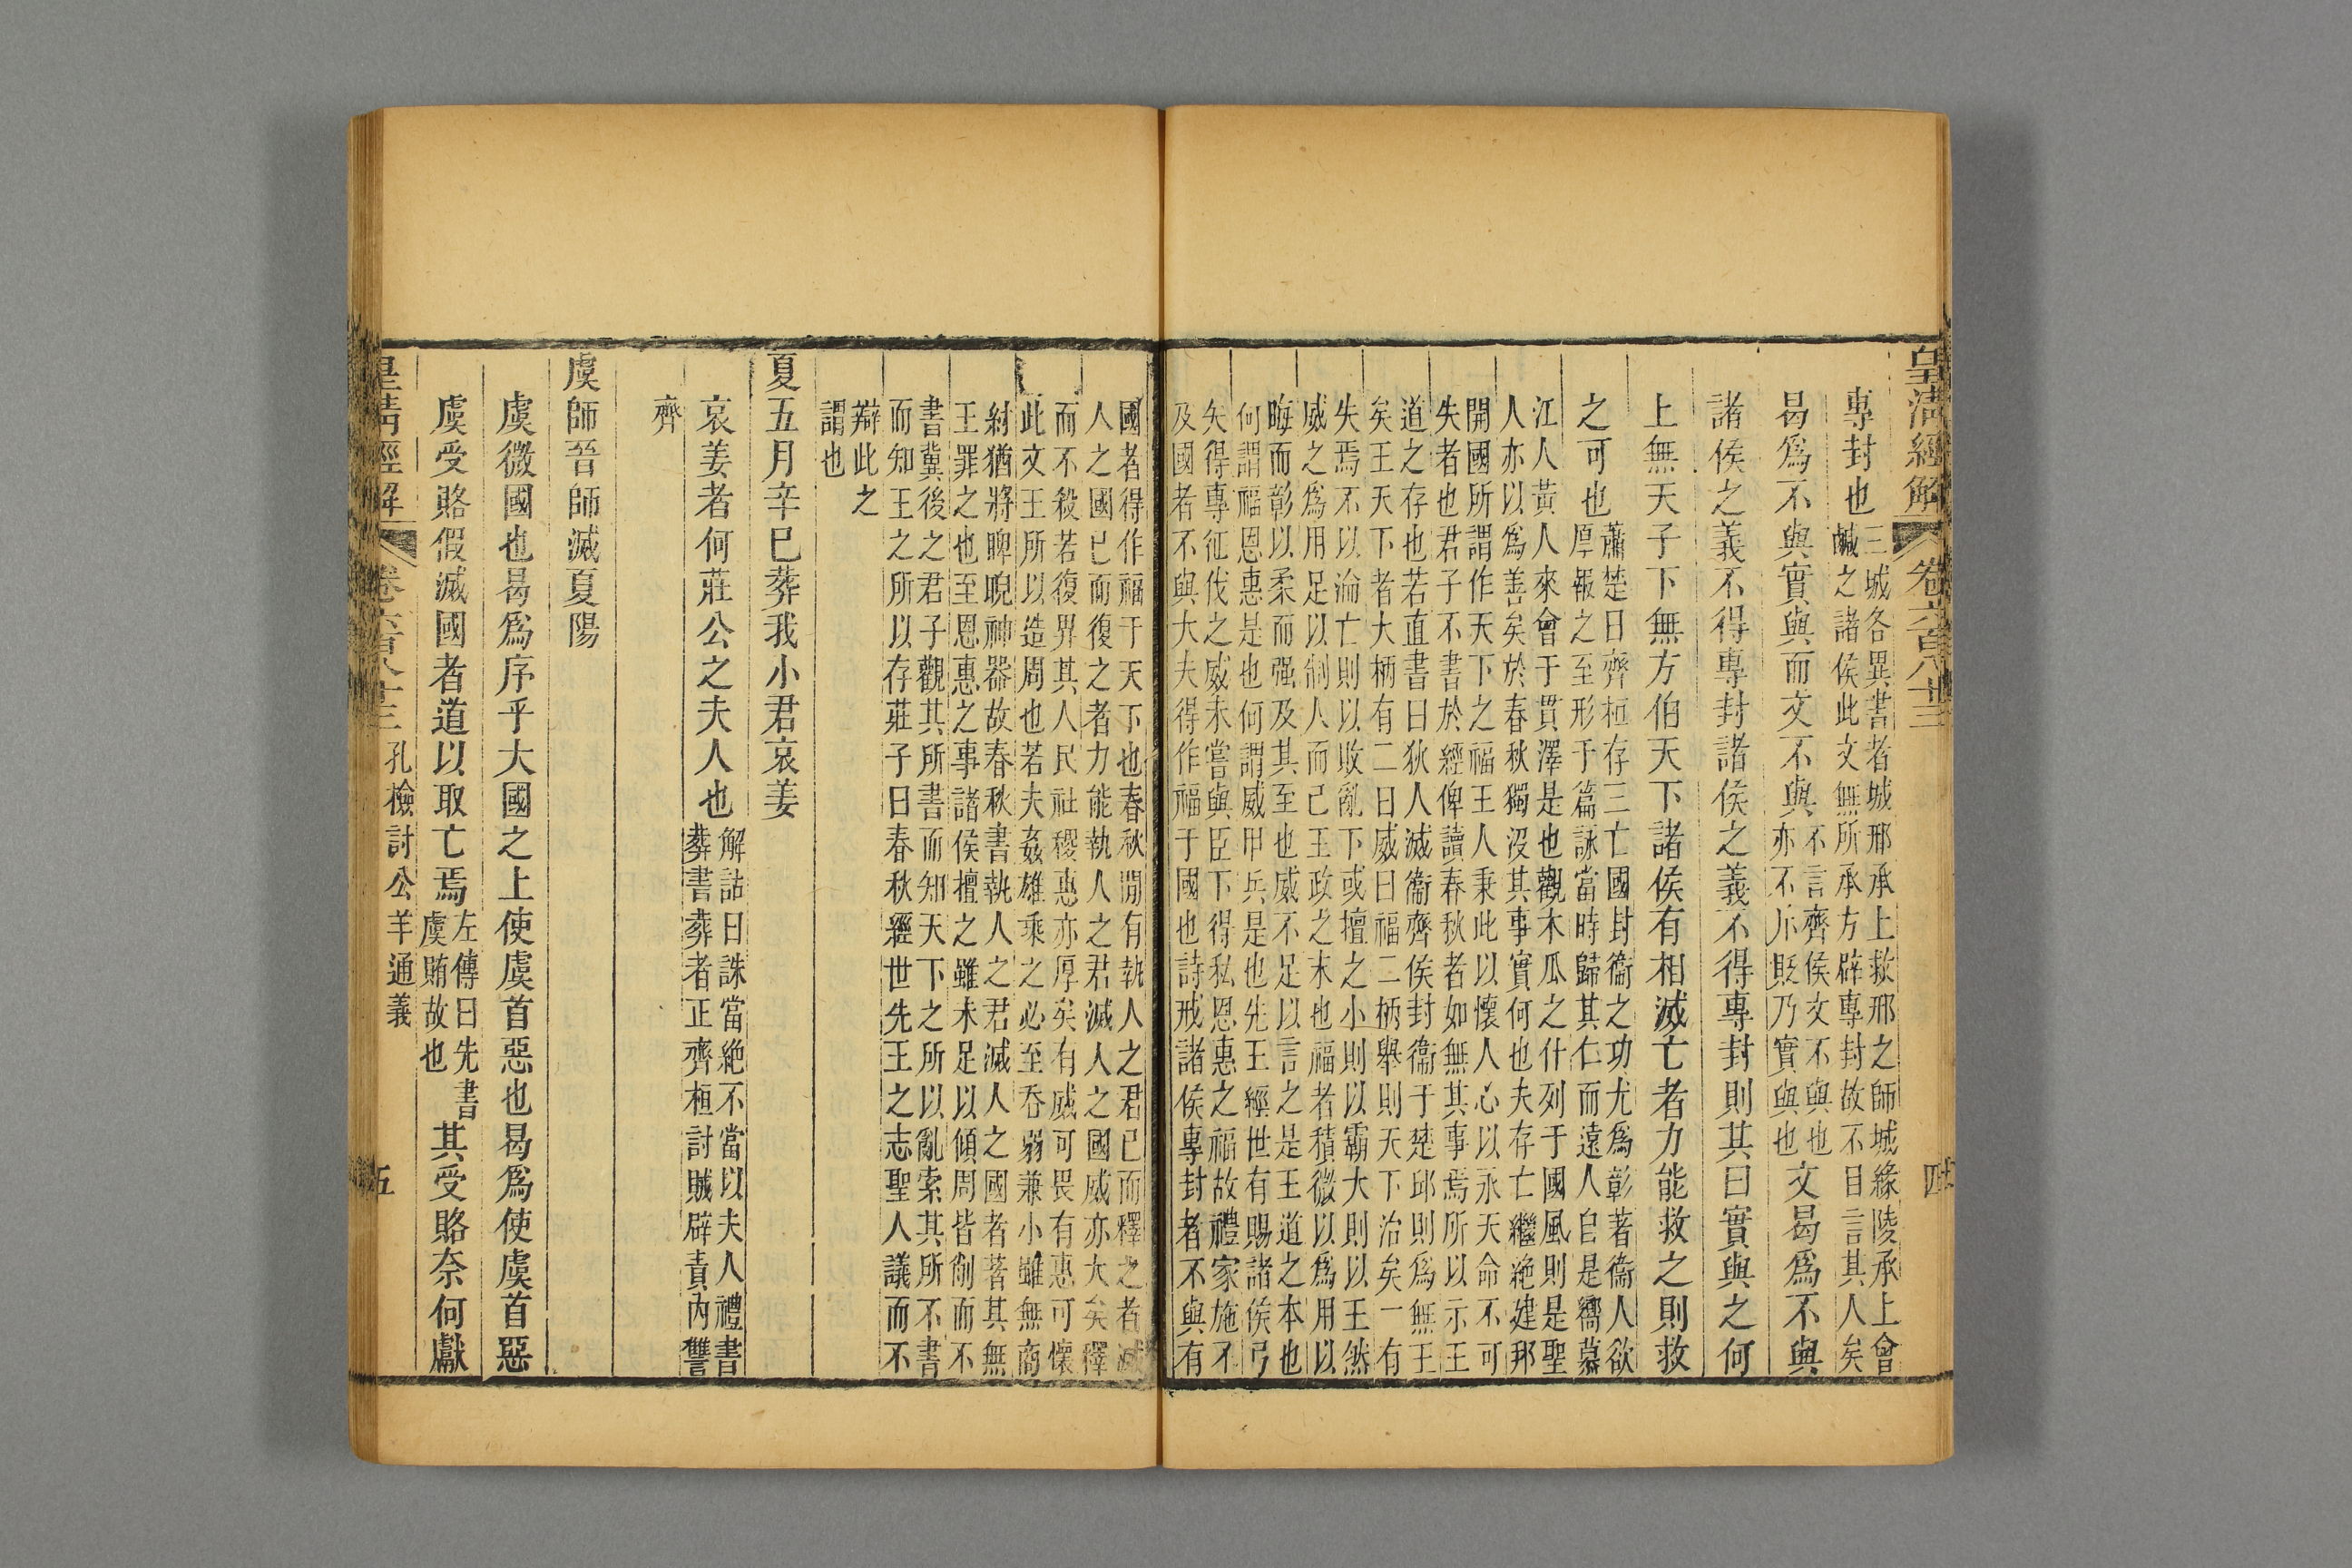 皇清經解 卷六百八十三 四
專封也
三城各異書者城邢承上救邢之師城緣陵承上會
鹹之諸侯此文無所承方辟專封故不目言其人矣
曷爲不與實與而文不與
不言齊侯文不與也
亦不斥貶乃實與也
文曷爲不與
諸侯之義不得專封諸侯之義不得專封則其曰實與之何
上無天子下無方伯天下諸侯有相滅亡者力能救之則救
之可也
蕭楚曰齊桓存三亡國封衞之功尤爲彰著衞人欲
厚報之至形于篇詠當時歸其仁而遠人自是嚮慕
江人黃人來會于貫澤是也觀木瓜之什列于國風則是聖
人亦以爲善矣於春秋獨沒其事實何也夫存亡繼絶建邦
開國所謂作天下之福王人秉此以懷人心以永天命不可
失者也君子不書於經俾讀春秋者如無其事焉所以示王
道之存也若直書曰狄人滅衞齊侯封衞于楚邱則爲無王
矣王天下者大柄有二曰威曰福二柄舉則天下治矣一有
失焉不以淪亡則以敗亂下或擅之小則以霸大則以王然
威之爲用足以制人而已王政之末也福者積微以爲用以
晦而彰以柔而强及其至也威不足以言之是王道之本也
何謂福恩惠是也何謂威甲兵是也先王經世有賜諸侯弓
矢得專征伐之威未嘗與臣下得私恩惠之福故禮家施不
及國者不與大夫得作福于國也詩戒諸侯專封者不與有
國者得作福于天下也春秋閒有執人之君已而釋之者滅
人之國已而復之者力能執人之君滅人之國威亦大矣釋
而不殺若復畀其人民社稷惠亦厚矣有威可畏有惠可懷
此文王所以造周也若夫姦雄乘之必至吞弱兼小雖無商
紂猶將睥睨神器故春秋書執人之君滅人之國者著其無
王罪之也至恩惠之事諸侯擅之雖未足以傾周皆削而不
書冀後之君子觀其所書而知天下之所以亂索其所不書
而知王之所以存莊子曰春秋經世先王之志聖人議而不
辯此之
謂也
夏五月辛巳葬我小君哀姜
哀姜者何莊公之夫人也
解詁曰誅當絶不當以夫人禮書
葬書葬者正齊桓討賊辟責內讐
齊
虞師晉師滅夏陽
虞微國也曷爲序乎大國之上使虞首惡也曷爲使虞首惡
虞受賂假滅國者道以取亡焉
左傳曰先書
虞賄故也
其受賂奈何獻
皇清經解 卷六百八十三 孔檢討公羊通義 五